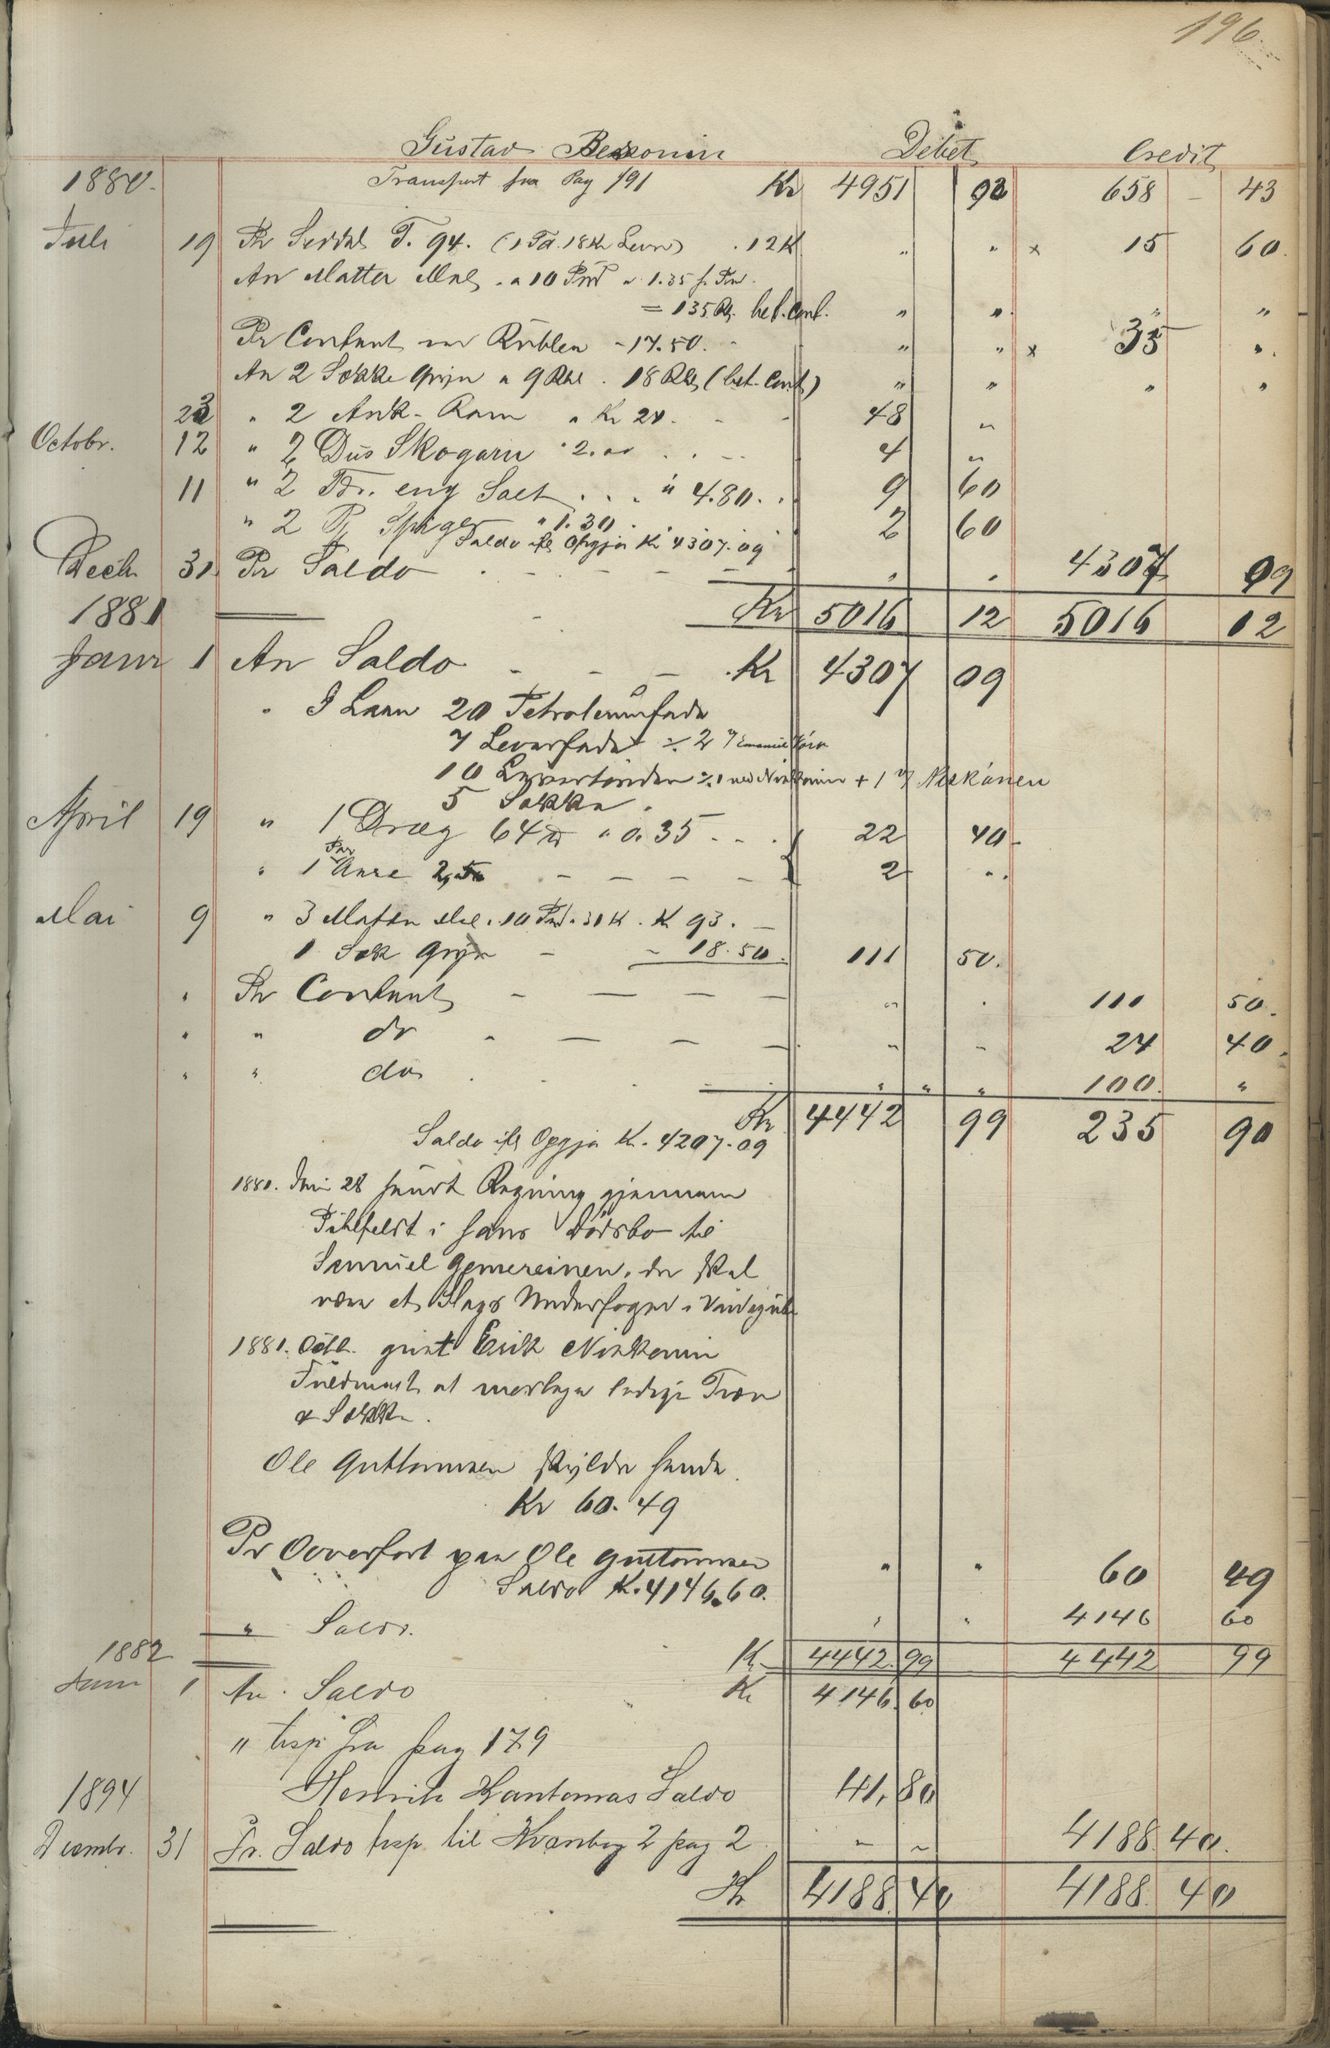 196
Gustav Bessonin Debet Credit
1880. Transport fra Pag 191 Kr 4951 92 658 43
Juli 19 Pr Seddel T. 94. (1 Td. 18 Kr Levr) . 12 K " " x 15 60.
An Matter Mel . a 10 Pud a 1.35 p. Pud
= 135 Rb. bet. Cont. " " " "
Pr Contant in Rublen - 17.50. " " x 35 ".
An 2 Sække Gryn a 9 Rbl . 18 Rbl (bet. Cont) " " " "
23 " 2 Ank - Rom " Kr 24. - - 48 "
Octobr. 12 " 2 Dus Skogarn " 2.00 . . - 4 "
11 " 2 Tdr. eng Salt . . . " 4.80. . 9 60
" 2 P. Spiger " 1.30 . 2 60
Saldo ifl Opgjør Kr 4307.09
Decb 31. Pr Saldo . - - - - " . 4307 09
1881 Kr 5016 12 5016 12
Janr 1 An Saldo - - - . Kr 4307 09
" I Laan 20 Petroleumfade
7 Leverfade ÷ 2
10 Levertønder ÷ 1 + 1
5 Sække .
April 19 " 1 Dræg 64 a 0.35 - - . 22 40 -
" 1 Par Aare 2,50 - - - - - 2 "
Mai 9 " 3 Matter Mel . 10 Pud . 31 K . Kr 93. -
1 Sæk Gryn - - 18.50. 111 50.
" Pr Contant - - - - " . 110 50.
" " do - - - - " - 24 40.
" " do . . . - " " " 100. "
Kr 4442 99 235 90
Saldo ifl Opgjør Kr. 4207.09
1881. Juni 28 sendt Regning gjennem
i hans Dødsbo til
Samuel der skal
være et Slags Underfoged i
1881. Octb. givet Erik Niskanin
Fuldmagt at modtage ledige Træer
& Sække.
Ole Guttormsen skylder hande
Kr 60.49
Pr Overført paa Ole Guttormsen " " 60 49
Saldo K. 4146.60.
" Saldo. " " 4146 60
1882 Kr 4442.99 4442 99
Janr 1 An. Saldo Kr 4146.60
" trsp fra pag 179
1894 Henrik Kantomas Saldo 41,80
Decembr. 31 Pr. Saldo trsp til Kvænbog 2 pag 2 " " 4188.40.
Kr 4188.40 4188.40